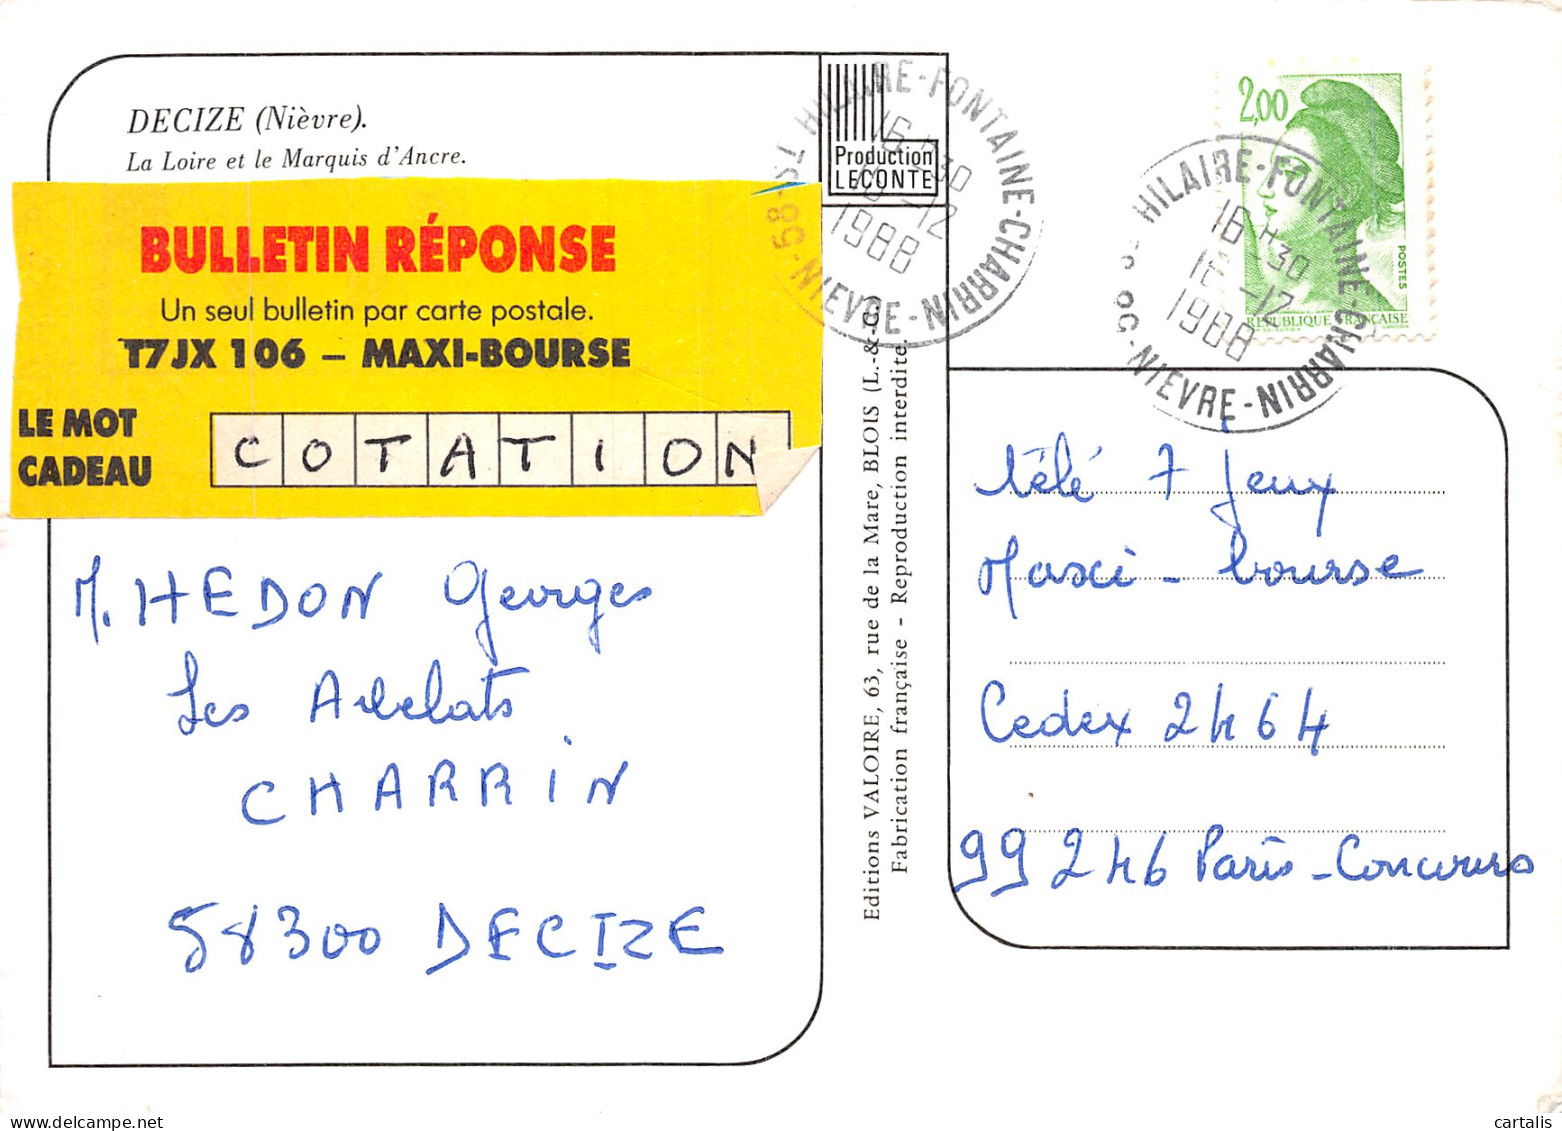 DECIZE (Nièvre).
La Loire et le Marquis d'Ancre.
BULLETIN RÉPONSE
Un seul bulletin par carte postale.
T7JX 106 – MAXI-BOURSE
LE MOT
CADEAU
COTATION
M. HEDON Georges
Les
CHARRIN
58300 DECIZE
Production
LECONTE
58-ST HILAIRE-FONTAINE-CHARRIN-NIEVRE
16 H 30
-12
1988
Editions VALOIRE, 63, rue de la Mare, BLOIS (L.-&-C.)
Fabrication française - Reproduction interdite.
2,00
POSTES
REPUBLIQUE FRANÇAISE
HILAIRE-FONTAINE-CHARRIN-NIEVRE
16 H 30
16 -12
1988
télé 7 Jeux
Maxi - bourse
Cedex 2464
99 246 Paris-Concours
cartalis